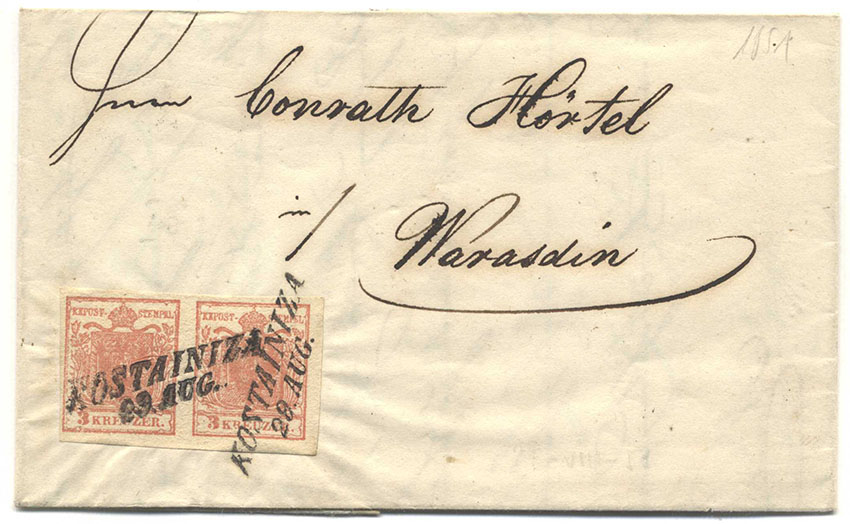 1854
Herrn Conrath Hörtel
in/
Warasdin
KKPOST-STEMPEL
KKPOST-STEMPEL
KOSTAINIZA
29. AUG.
KOSTAINIZA
29. AUG.
3 KREUZER.
3 KREUZER.